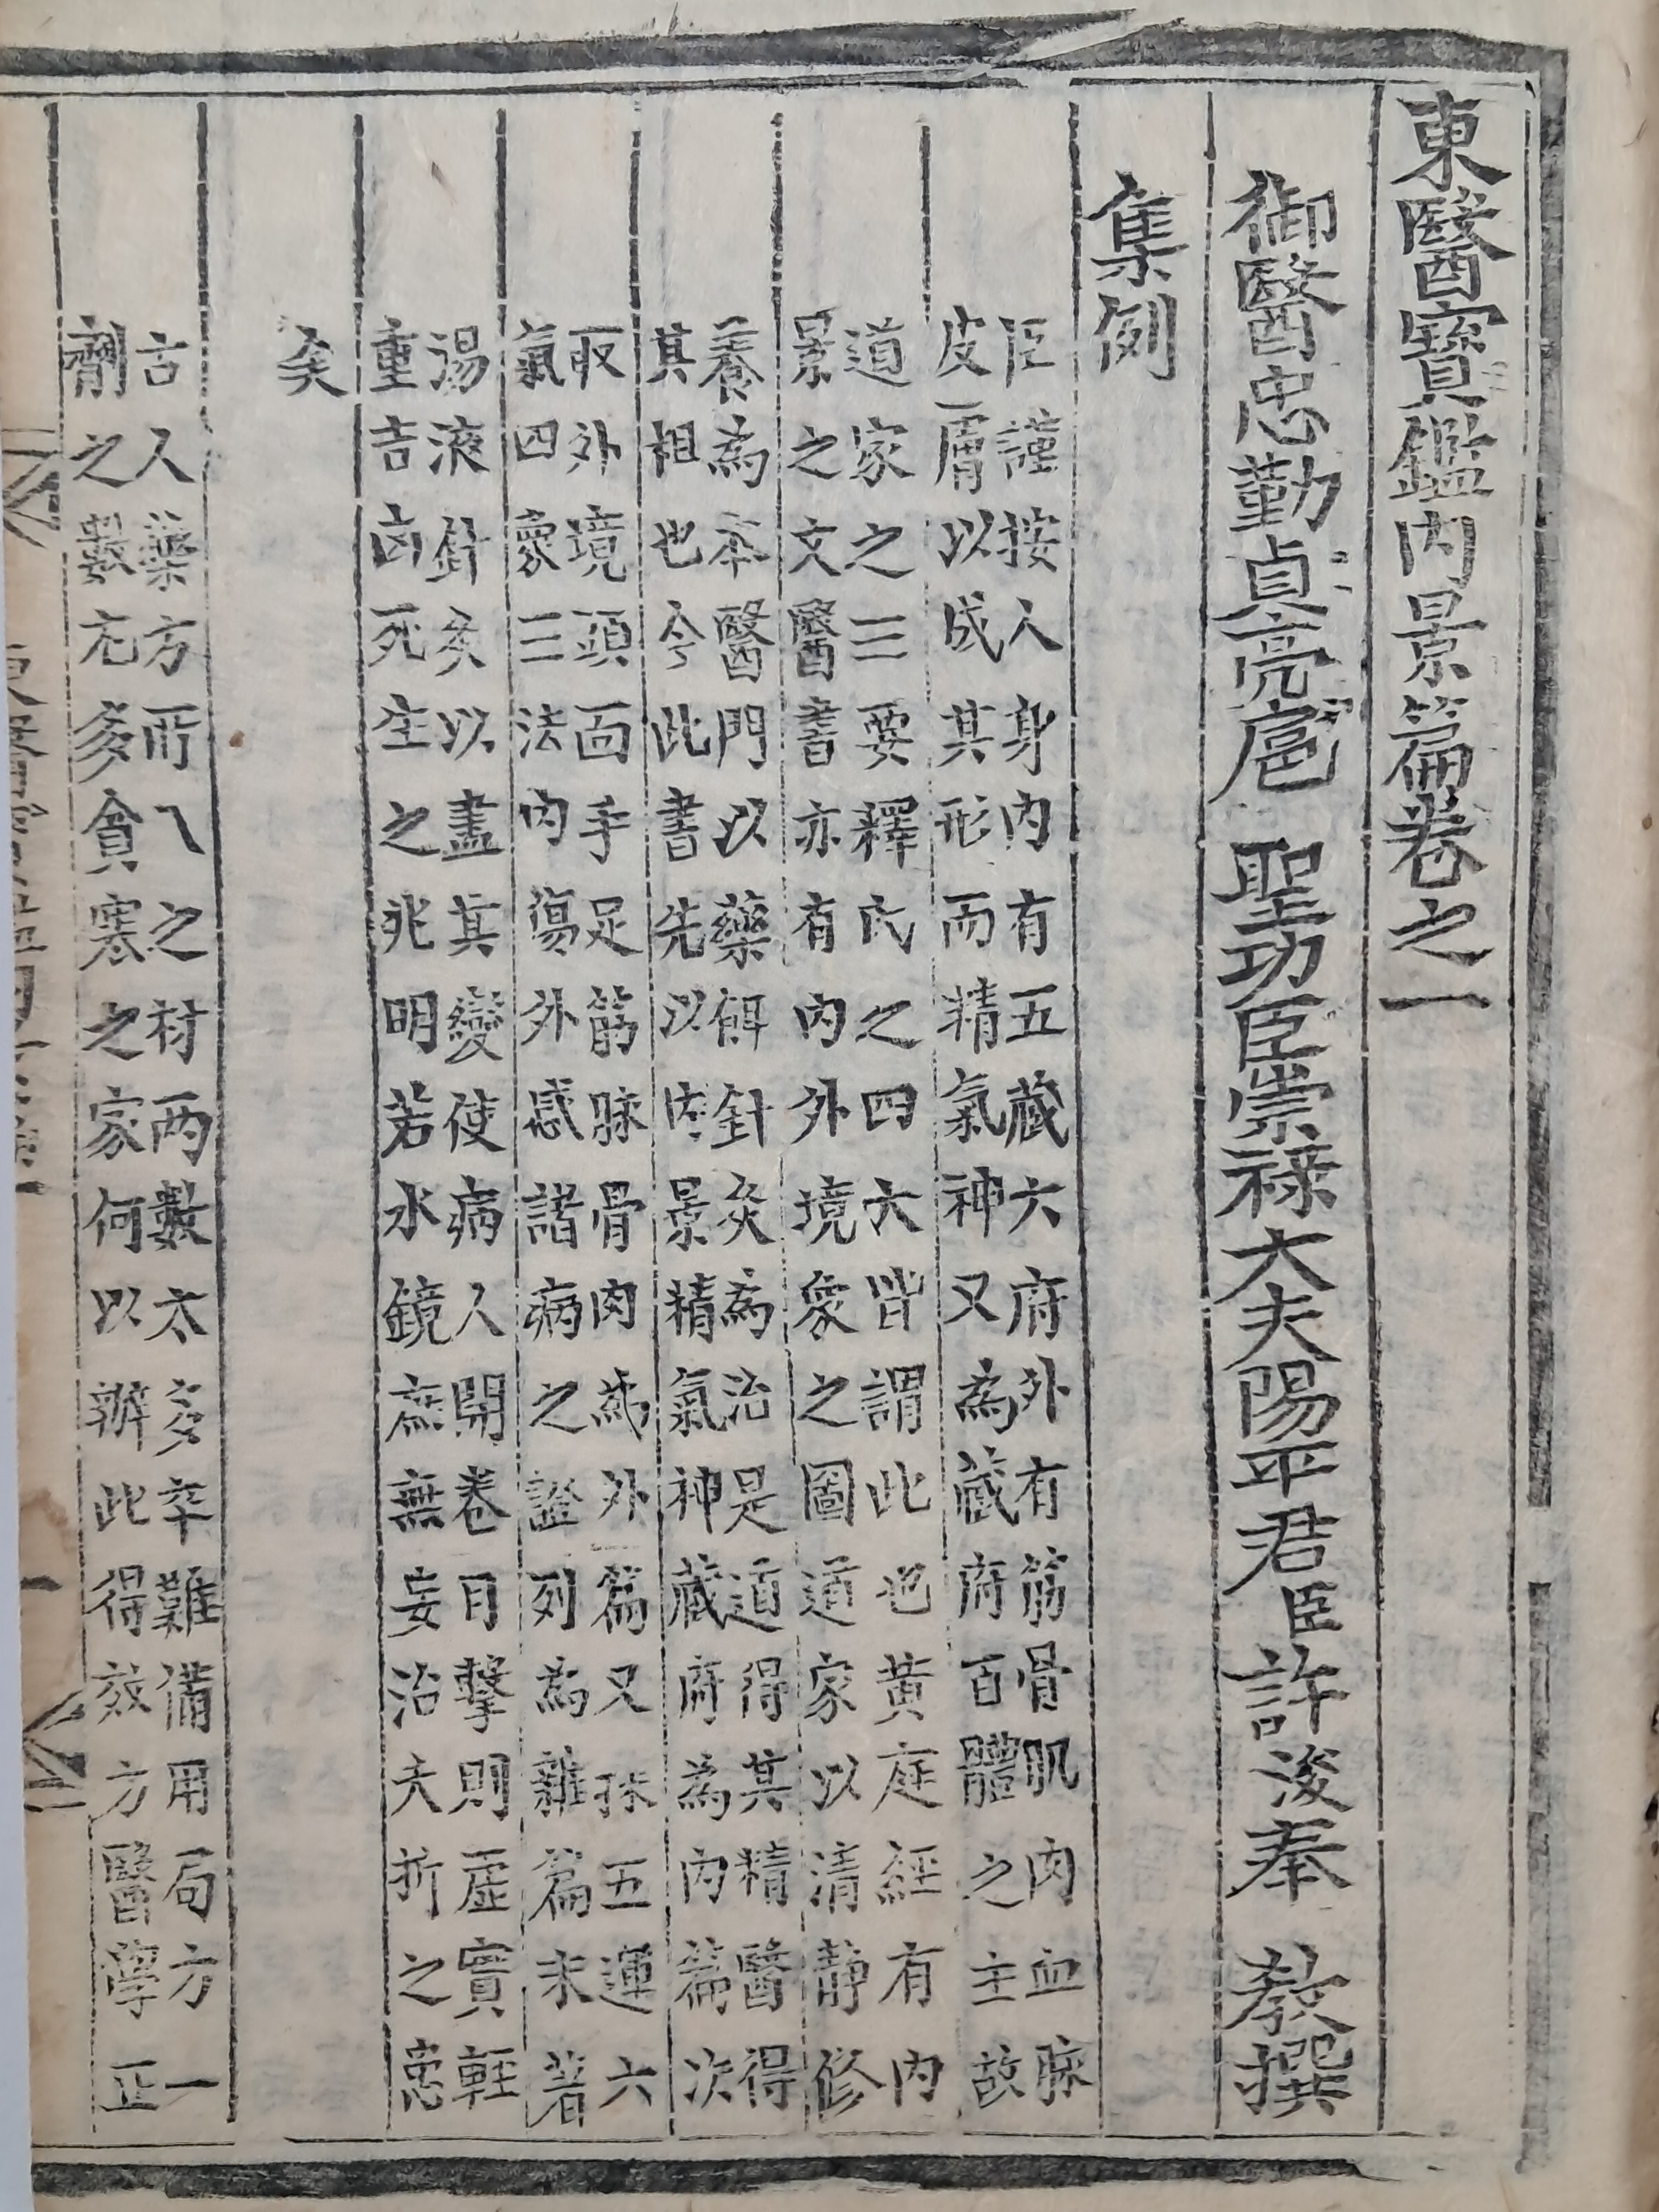 東醫寶鑑內景篇卷之一
御醫忠勤貞亮扈 聖功臣崇祿大夫陽平君臣許浚奉 教撰
集例
臣謹按人身內有五藏六府外有筋骨肌肉血脉
皮膚以成其形而精氣神又爲藏府百體之主故
道家之三要釋氏之四大皆謂此也黃庭經有內
景之文醫書亦有內外境象之圖道家以清靜修
養爲本醫門以藥餌針灸爲治是道得其精醫得
其粗也今此書先以內景精氣神藏府爲內篇次
取外境頭面手足筋脉骨肉爲外篇又採五運六
氣四象三法內傷外感諸病之證列爲雜篇末著
湯液針灸以盡其變使病人開卷目擊則虛實輕
重吉凶死生之兆明若水鏡庶無妄治夭折之患
矣
古人藥方所入之材兩數太多卒難備用局方一
劑之數尤多貪寒之家何以辦此得效方醫學正